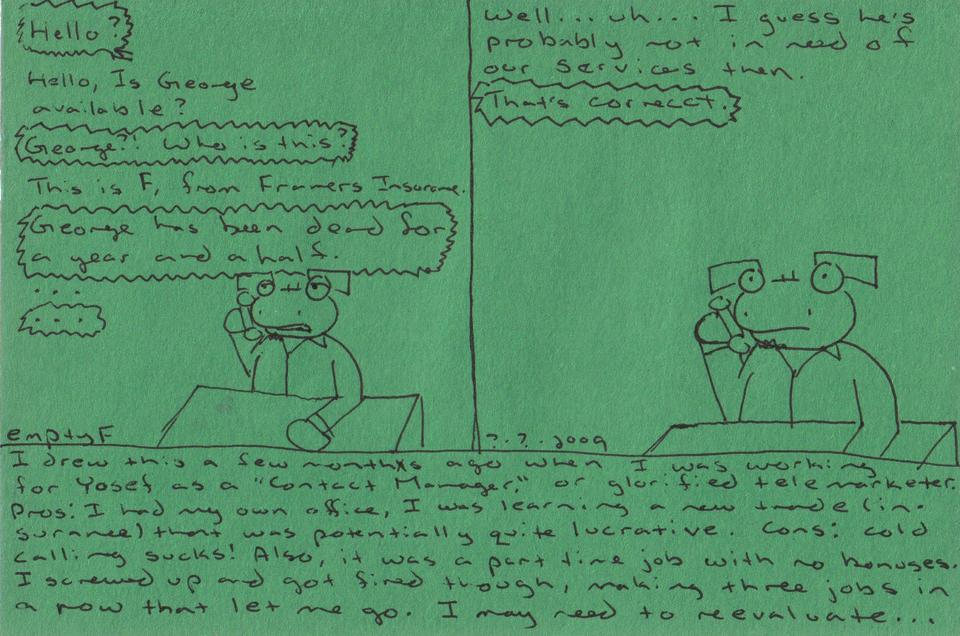 Hello?
Hello, Is George
available?
George?! Who is this?
This is F, from Framers Insurance.
George has been dead for
a year and a half.
...
...
emptyF
Well... uh... I guess he's
probably not in need of
our services then.
That's correcct.
?.?.2009
I drew this a few months ago when I was working
for Yosef as a "Contact Manager," or glorified telemarketer.
Pros: I had my own office, I was learning a new trade (in-
surance) that was potentially quite lucrative. Cons: cold
calling sucks! Also, it was a part time job with no bonuses.
I screwed up and got fired though, making three jobs in
a row that let me go. I may need to reevaluate...